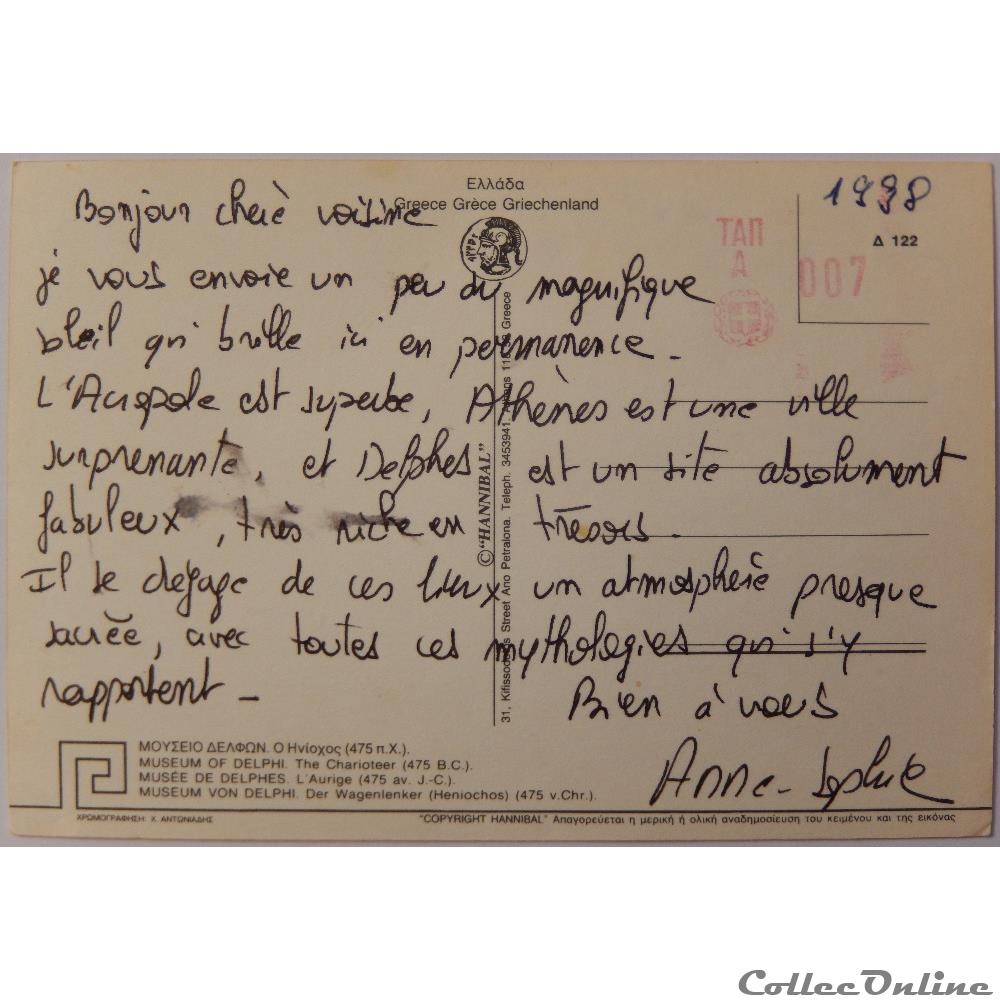 Ελλάδα
Greece Grèce Griechenland
1998
Δ 122
ΤΑΠ
Α
007
Bonjour chère voisine
je vous envoie un peu du magnifique
soleil qui brille ici en permanence.
L'Acropole est superbe, Athènes est une ville
surprenante, et Delphes est un site absolument
fabuleux, très riche en trésors.
Il se dégage de ces lieux un atmosphère presque
sacrée, avec toutes ces mythologies qui s'y
rapportent -
Bien à vous
Anne-Sophie
©"HANNIBAL"
31, Kifissodos Street Ano Petralona. Teleph. 3453941 Greece
ΜΟΥΣΕΙΟ ΔΕΛΦΩΝ. Ο Ηνίοχος (475 π.Χ.).
MUSEUM OF DELPHI. The Charioteer (475 B.C.).
MUSÉE DE DELPHES. L'Aurige (475 av. J.-C.).
MUSEUM VON DELPHI. Der Wagenlenker (Heniochos) (475 v.Chr.).
ΧΡΩΜΟΓΡΑΦΗΣΗ: Χ. ΑΝΤΩΝΙΑΔΗΣ
"COPYRIGHT HANNIBAL" Απαγορεύεται η μερική ή ολική αναδημοσίευση του κειμένου και της εικόνας
CollecOnline